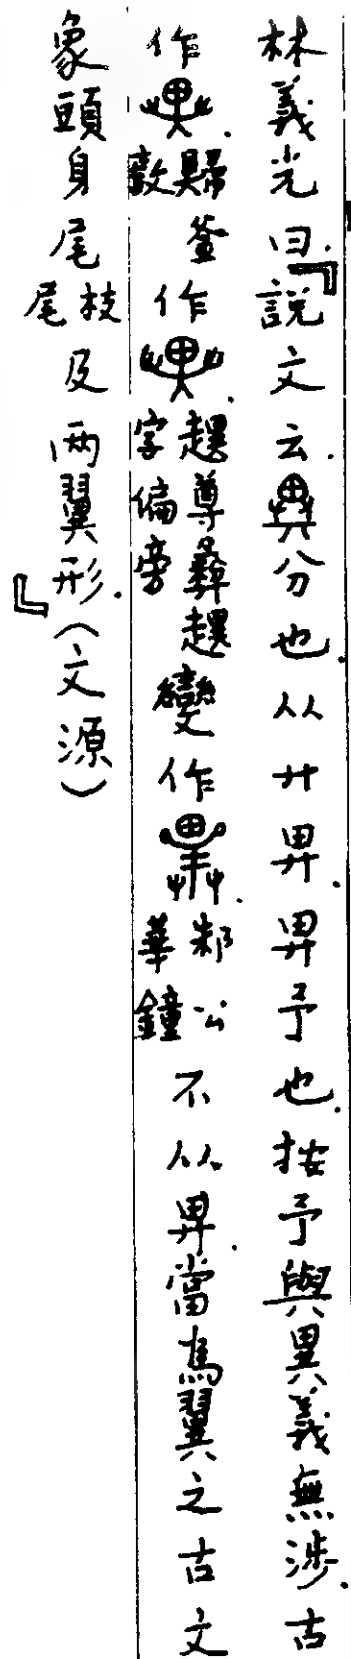 林義光曰.『說文云.異分也.从廾畀.畀予也.按予與異義無涉.古
作.敦作.趩尊彝趩字偏旁變作.邾公華鐘不从畀.當為翼之古文
象頭身尾枝尾及兩翼形.』(文源)